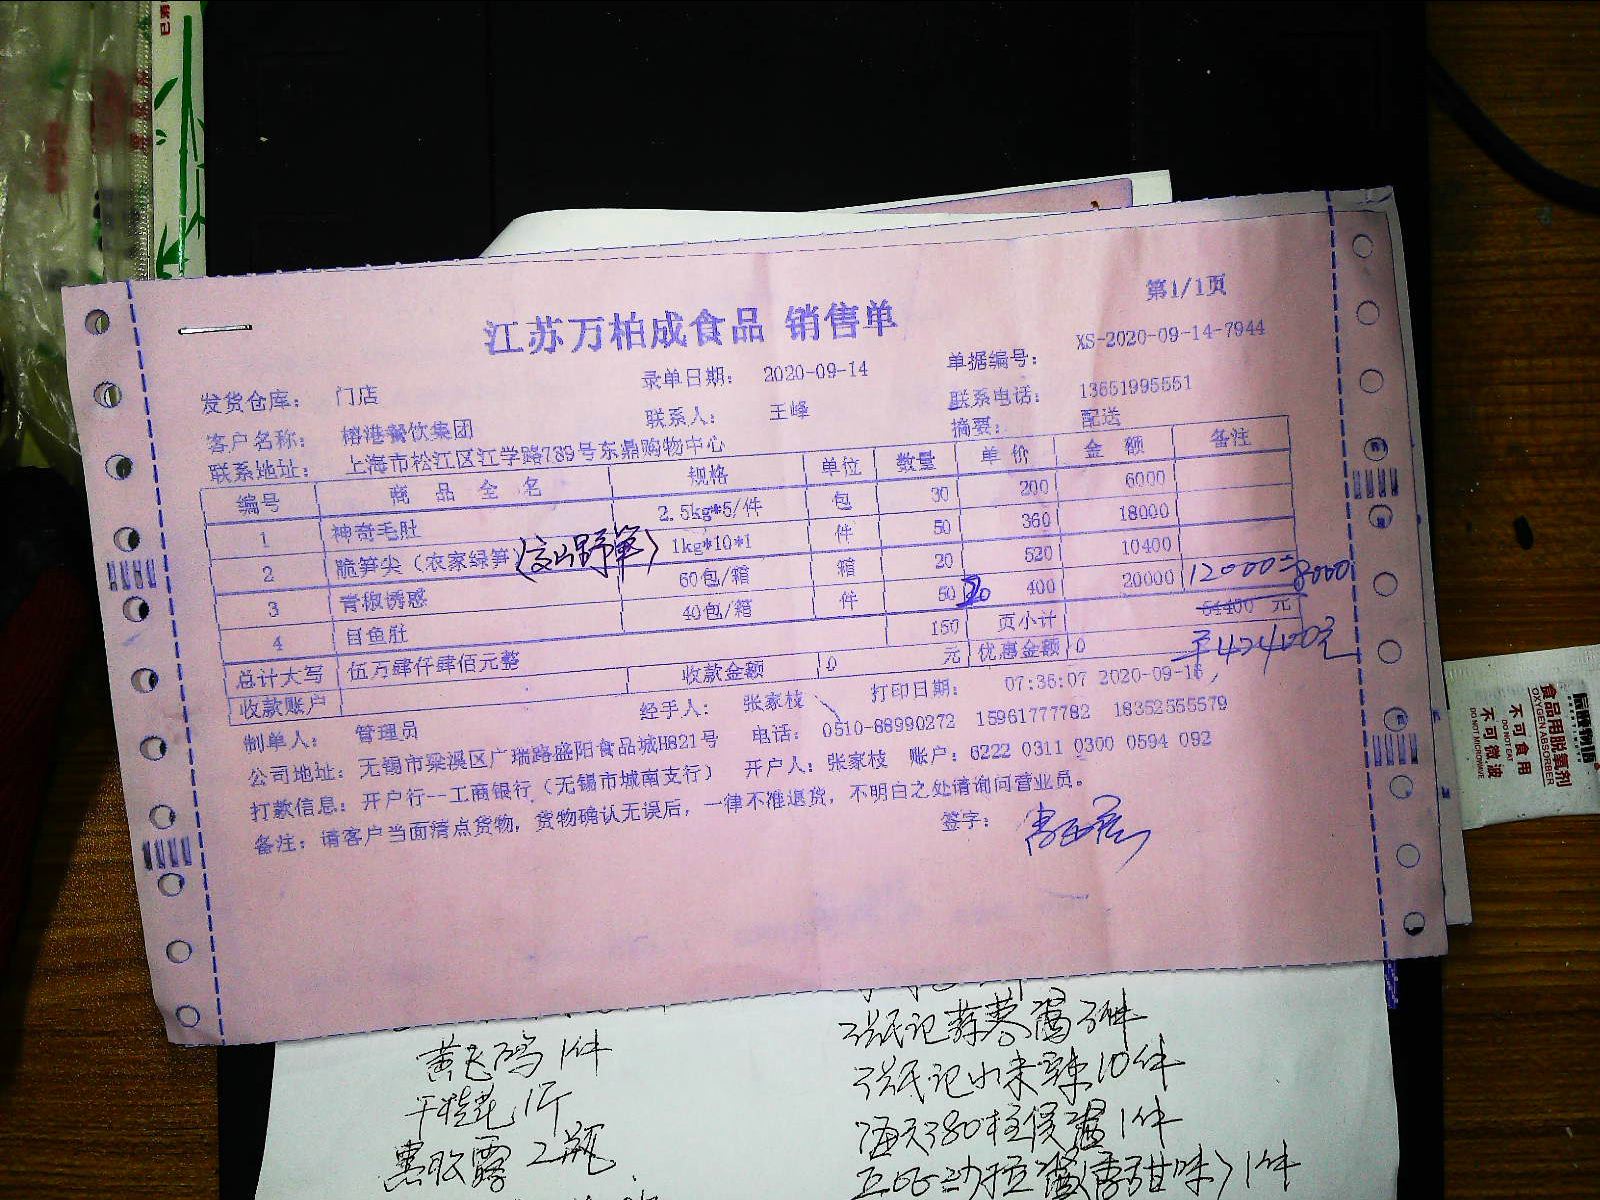 江苏万柏成食品 销售单
第1/1页
发货仓库： 门店 录单日期： 2020-09-14 单据编号： XS-2020-09-14-7944
客户名称： 榕港餐饮集团 联系人： 王峰 联系电话： 13651995551
联系地址： 上海市松江区江学路789号东鼎购物中心 摘要： 配送
编号 商品全名 规格 单位 数量 单价 金额 备注
1 神奇毛肚 2.5kg*5/件 包 30 200 6000
2 脆笋尖（农家绿笋 1kg*10*1 件 50 360 18000
3 青椒诱惑 60包/箱 箱 20 520 10400
4 目鱼肚 40包/箱 件 50 20 400 20000 12000=8000
150 页小计 54400 元
总计大写 伍万肆仟肆佰元整 收款金额 0 元 优惠金额 0 42400元
收款账户
制单人： 管理员 经手人： 张家枝 打印日期： 07:36:07 2020-09-16
公司地址：无锡市梁溪区广瑞路盛阳食品城H821号 电话： 0510-68990272 15961777782 18352555579
打款信息：开户行--工商银行（无锡市城南支行） 开户人：张家枝 账户：6222 0311 0300 0594 092
备注：请客户当面清点货物，货物确认无误后，一律不准退货，不明白之处请询问营业员。
签字：
黄飞鸿 1件
干桂花 1斤
2瓶
张氏记蒜蓉酱 3件
10件
1件
1件
食品用脱氧剂
OXYGEN ABSORBER
不可食用
DO NOT EAT
不可微波
DO NOT MICROWAVE